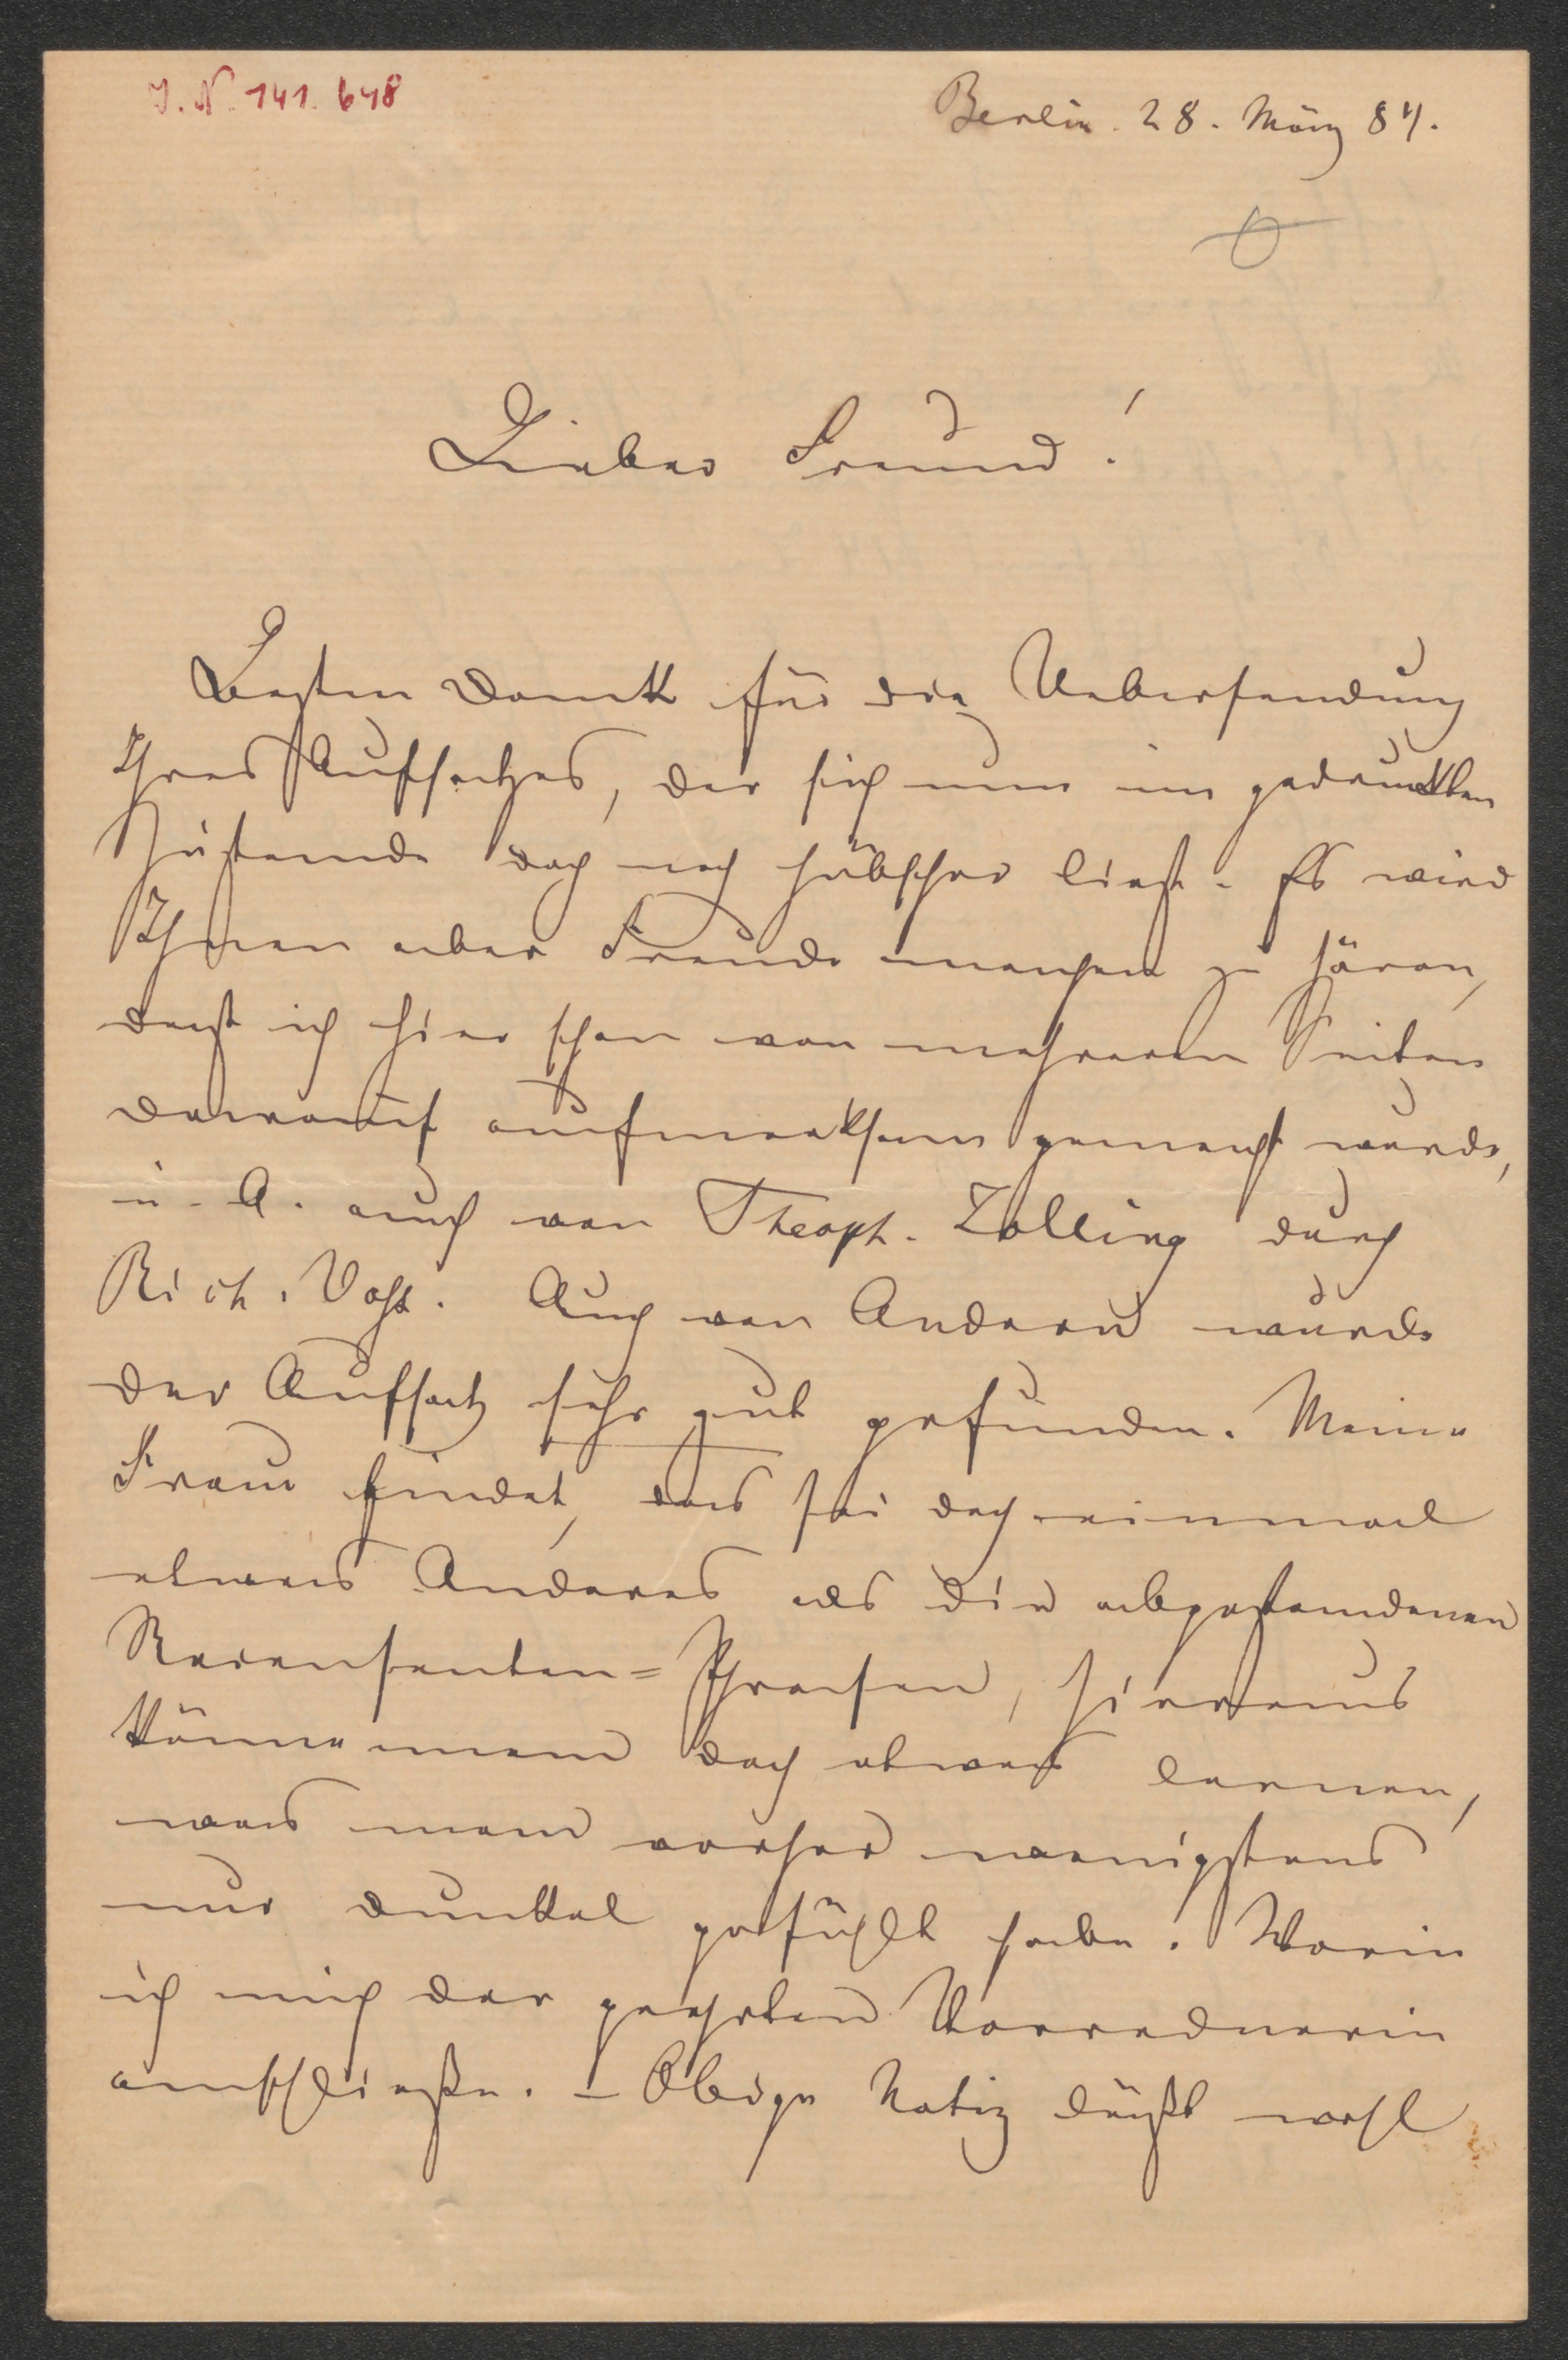 J. N. 141.648
Berlin. 28. März 84.
Lieber Freund!
Besten Dank für die Uebersendung
Ihres Aufsatzes, der sich nun im gedruckten
Zustande doch noch hübscher liest. Es wird
Ihnen aber Freude machen zu hören,
daß ich hier schon von mehreren Seiten
darauf aufmerksam gemacht wurde,
u. A. auch von Theoph. Zolling durch
Rich. Voß. Auch von Andern wurde
der Aufsatz sehr gut gefunden. Meine
Frau findet, das sei doch einmal
etwas Anderes als die abgestandenen
Recensenten-Phrasen, hieraus
könne man doch etwas lernen,
was man vorher wenigstens
nur dunkel gefühlt habe. Worin
ich mich der geehrten Vorrednerin
anschließe. – Obige Notiz läßt wohl